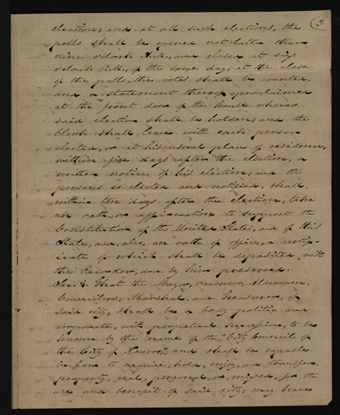 3
elections, and at all such elections, the
polls shall be opened not later than
nine o'clock A.M. and closed at six
o'clock P.M. of the same day; at the close
of the polls the votes shall be counted,
and a statement thereof proclaimed
at the front door of the house wherein
said election shall be holden; and the
Clerk shall leave with each person
elected, or at his usual place of residence,
within five days after the election, a
written notice of his election; and the
persons so elected and notified, shall
within ten days after the election, take
an oath or affirmation to support the
Constitution of the United States, and of this
State, and also, an oath of office, a certif-
icate of which shall be deposited with
the Recorder, and by him preserved.
Sec. That the Mayor, Recorder, Aldermen,
Councilors, Marshal, and Treasurer, of
said city, shall be a body politic and
corporate, with perpetual succession, to be
known by the name of the City Council of
the City of and shall be capable
in law to acquire, hold, enjoy, and transfer
property, real, personal, or mixed, for the
use and benefit of said city; may have